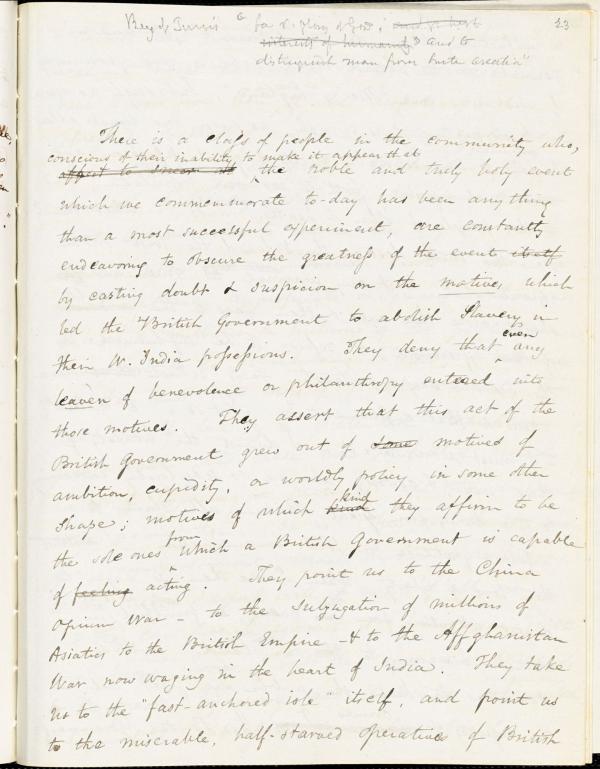 23
for ye. glory of God; and ye. best
interests of humanity" and to
distinguish man from brute creation"
There is a class of people in the community who,
conscious of their inability to make it appear that
affect to sneer at the noble and truly holy event
which we commemorate to-day has been any thing
than a most successful experiment, are constantly
endeavoring to obscure the greatness of the event itself
by casting doubt & suspicion on the motives which
led the British Government to abolish Slavery in
their W. India possessions. They deny that even any
leaven of benevolence or philanthropy entered into
those motives. They assert that this act of the
British Government grew out of some motives of
ambition, cupidity, or worldly policy in some other
shape; motives of which kind kind they affirm to be
the sole ones from which a British Government is capable
of feeling acting. They point us to the China
Opium War - to the subjugation of millions of
Asiatics to the British Empire - & to the Affghanistan
War now waging in the heart of India. They take
us to the "fast-anchored isle" itself, and point us
to the miserable, half-starved operatives of British